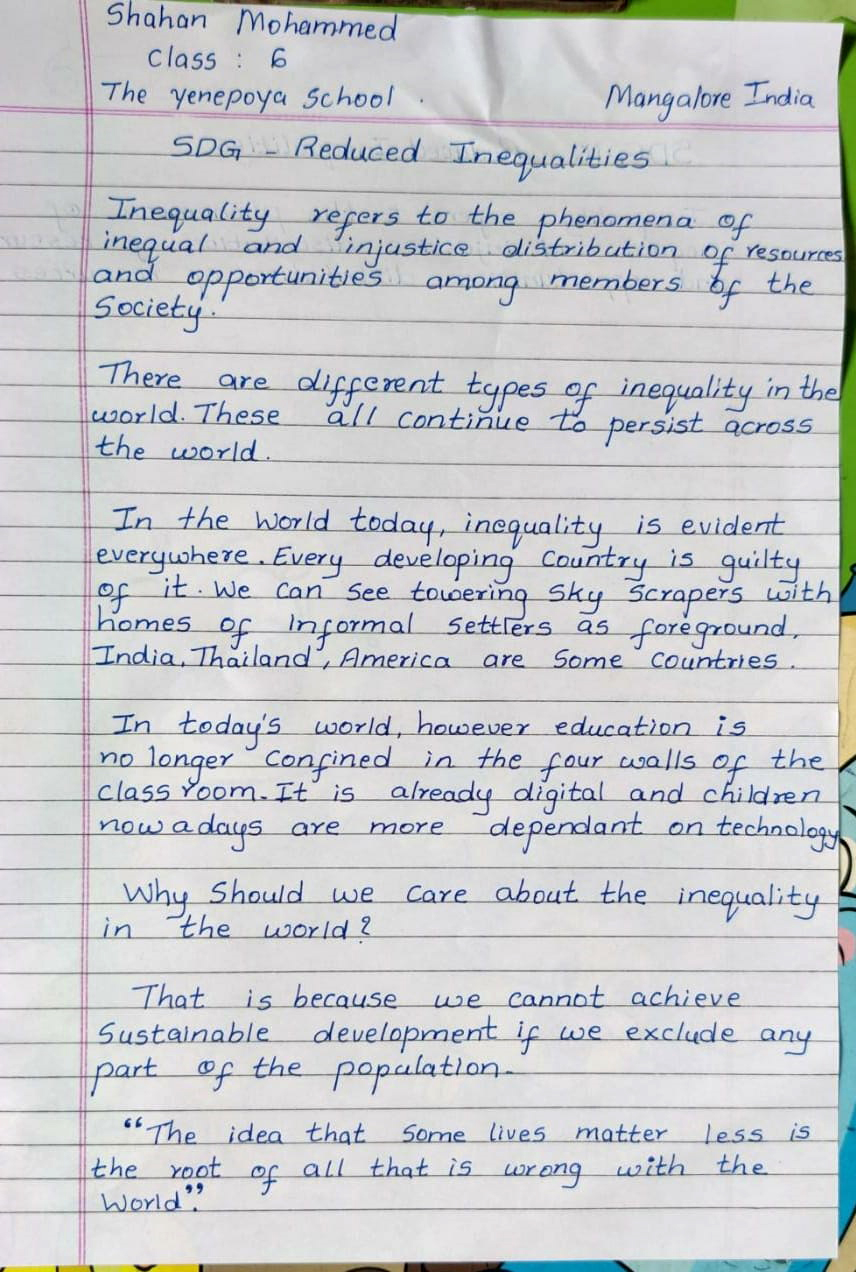 Shahan Mohammed
Class : 6
The yenepoya School . Mangalore India
SDG - Reduced Inequalities
Inequality refers to the phenomena of
inequal and injustice distribution of resources
and opportunities among members of the
Society.
There are different types of inequality in the
world. These all continue to persist across
the world.
In the world today, inequality is evident
everywhere. Every developing Country is guilty
of it. We can see towering Sky Scrapers with
homes of informal settlers as foreground,
India, Thailand, America are some countries.
In today's world, however education is
no longer confined in the four walls of the
class room. It is already digital and children
now a days are more dependant on technology
Why Should we care about the inequality
in the world?
That is because we cannot achieve
Sustainable development if we exclude any
part of the population.
"The idea that some lives matter less is
the root of all that is wrong with the
World".